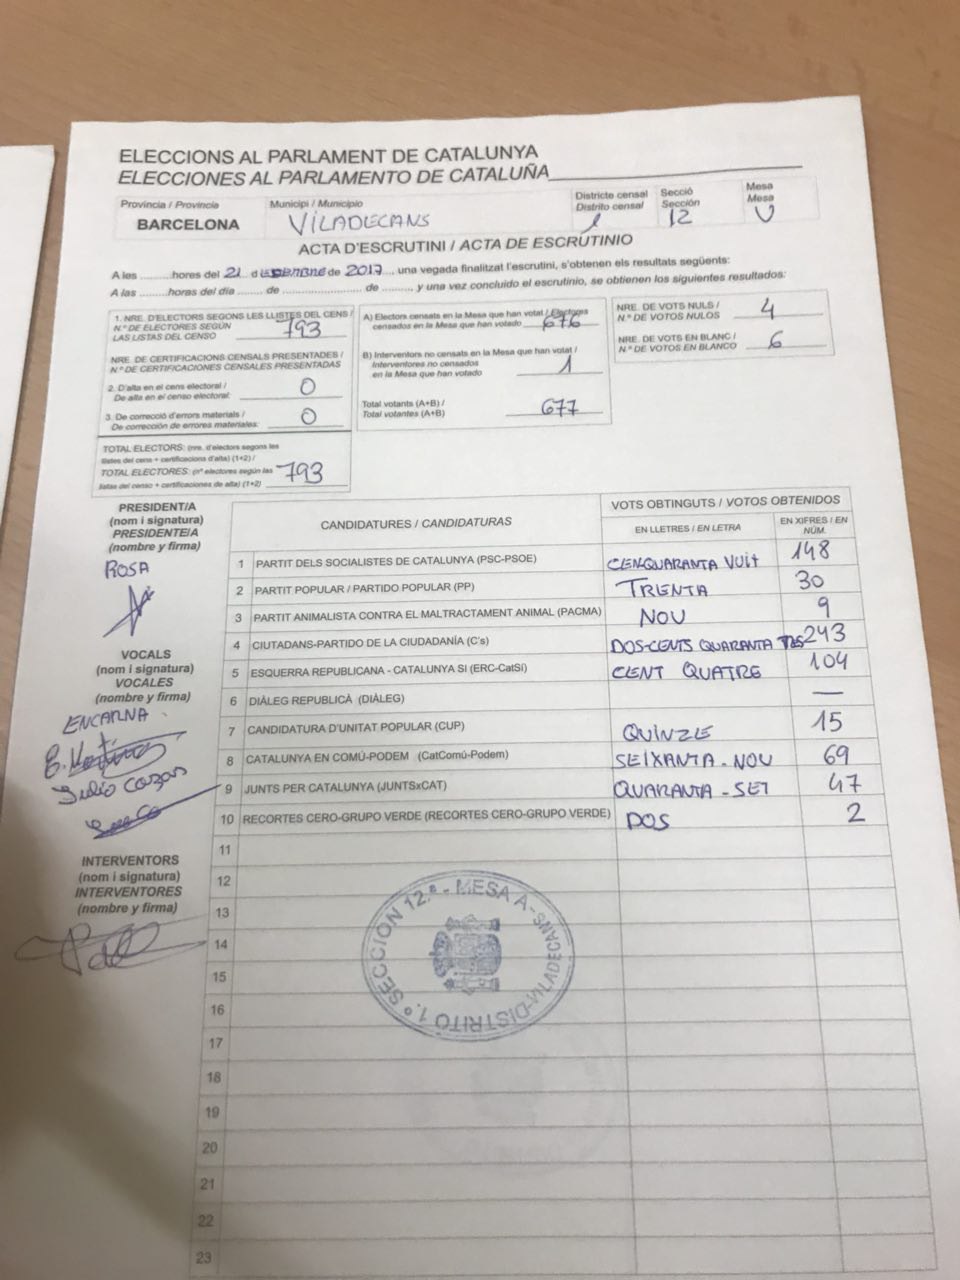 ELECCIONS AL PARLAMENT DE CATALUNYA
ELECCIONES AL PARLAMENTO DE CATALUÑA
Provincia / Provincia
BARCELONA
Municipi / Municipio
VILADECANS
Districte censal
Distrito censal
1
Secció
Sección
12
Mesa
Mesa
U
ACTA D'ESCRUTINI / ACTA DE ESCRUTINIO
A les ..........hores del 21 d de 2017, una vegada finalitzat l'escrutini, s'obtenen els resultats següents:
A las .........horas del día ..... de ........................... de ........, y una vez concluido el escrutinio, se obtienen los siguientes resultados:
1. NRE. D'ELECTORS SEGONS LES LLISTES DEL CENS /
N.º DE ELECTORES SEGÚN
LAS LISTAS DEL CENSO
793
NRE. DE CERTIFICACIONS CENSALS PRESENTADES /
N.º DE CERTIFICACIONES CENSALES PRESENTADAS
2. D'alta en el cens electoral /
De alta en el censo electoral:
0
3. De correcció d'errors materials /
De corrección de errores materiales:
0
TOTAL ELECTORS: (nre. d'electors segons les
llistes del cens + certificacions d'alta) (1+2) /
TOTAL ELECTORES: (nº electores según las
listas del censo + certificaciones de alta) (1+2)
793
A) Electors censats en la Mesa que han votat / Electores
censados en la Mesa que han votado
676
B) Interventors no censats en la Mesa que han votat /
Interventores no censados
en la Mesa que han votado
1
Total votants (A+B) /
Total votantes (A+B)
677
NRE. DE VOTS NULS /
N.º DE VOTOS NULOS
4
NRE. DE VOTS EN BLANC /
N.º DE VOTOS EN BLANCO
6
PRESIDENT/A
(nom i signatura)
PRESIDENTE/A
(nombre y firma)
ROSA
VOCALS
(nom i signatura)
VOCALES
(nombre y firma)
ENCARNA
Julio
INTERVENTORS
(nom i signatura)
INTERVENTORES
(nombre y firma)
CANDIDATURES / CANDIDATURAS
VOTS OBTINGUTS / VOTOS OBTENIDOS
EN LLETRES / EN LETRA
EN XIFRES / EN NÚM.
1 PARTIT DELS SOCIALISTES DE CATALUNYA (PSC-PSOE) CENQUARANTA VUIT 148
2 PARTIT POPULAR / PARTIDO POPULAR (PP) TRENTA 30
3 PARTIT ANIMALISTA CONTRA EL MALTRACTAMENT ANIMAL (PACMA) NOU 9
4 CIUTADANS-PARTIDO DE LA CIUDADANÍA (C's) DOS-CENTS QUARANTA TRES 243
5 ESQUERRA REPUBLICANA - CATALUNYA SI (ERC-CatSí) CENT QUATRE 104
6 DIÀLEG REPUBLICÀ (DIÀLEG) —
7 CANDIDATURA D'UNITAT POPULAR (CUP) QUINZE 15
8 CATALUNYA EN COMÚ-PODEM (CatComú-Podem) SEIXANTA-NOU 69
9 JUNTS PER CATALUNYA (JUNTSxCAT) QUARANTA-SET 47
10 RECORTES CERO-GRUPO VERDE (RECORTES CERO-GRUPO VERDE) DOS 2
11
12
13
14
15
16
17
18
19
20
21
22
23
DISTRITO 1.º SECCION 12.ª - MESA A - VILADECANS